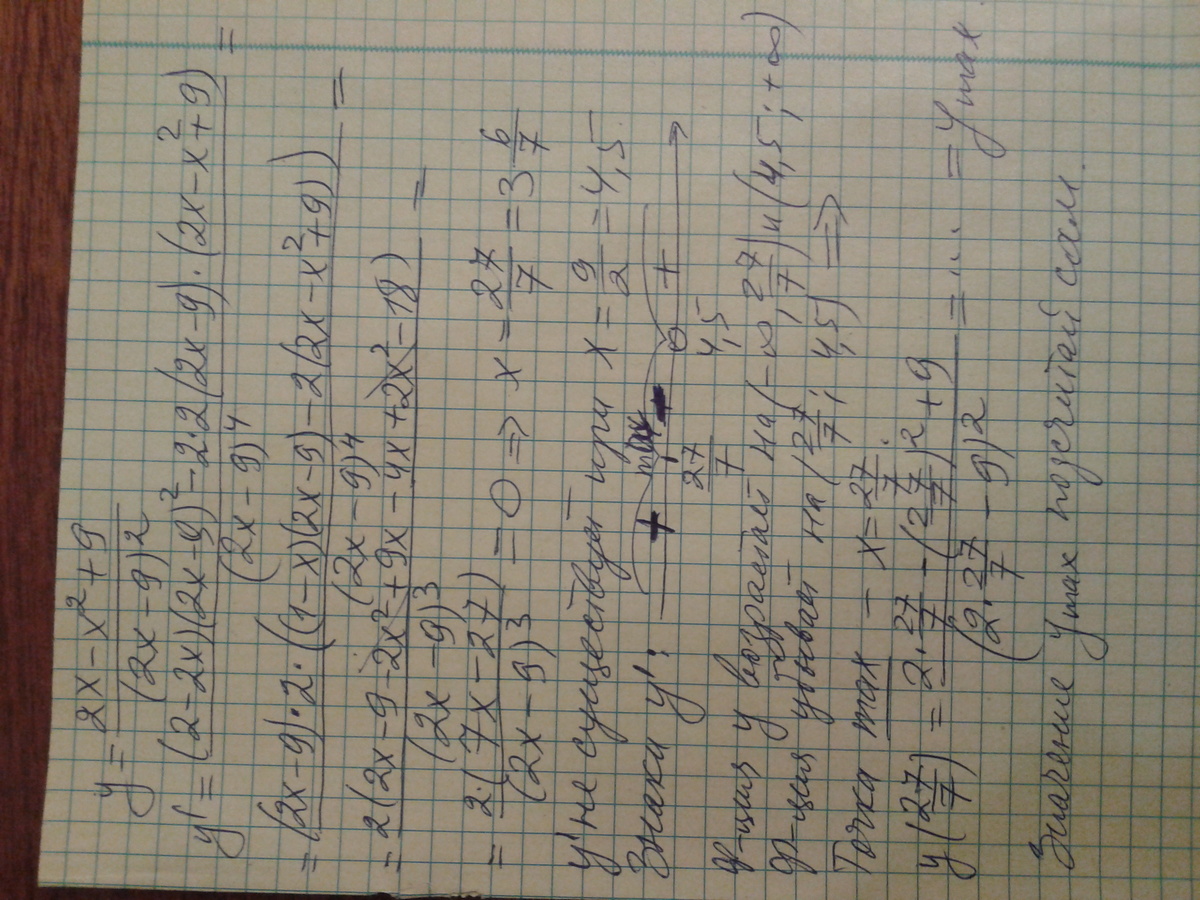 y = (2x - x² + 9)/(2x - 9)²
y' = ((2 - 2x)(2x - 9)² - 2·2(2x - 9)·(2x - x² + 9))/(2x - 9)⁴ =
= ((2x - 9)·2·((1 - x)(2x - 9) - 2(2x - x² + 9)))/(2x - 9)⁴ =
= 2(2x - 9 - 2x² + 9x - 4x + 2x² - 18)/(2x - 9)³ =
= 2·(7x - 27)/(2x - 9)³ = 0 => x = 27/7 = 3 6/7
y' не существует при x = 9/2 = 4,5
Знаки y': + max - +
27/7 4,5
ф-ция y возрастает на (-∞; 27/7) и (4,5; +∞)
ф-ция убывает на (27/7; 4,5) =>
Точка max - x = 27/7.
y(27/7) = (2·27/7 - (27/7)² + 9)/(2·27/7 - 9)² = ... = y max
Значение y max подсчитай сам.